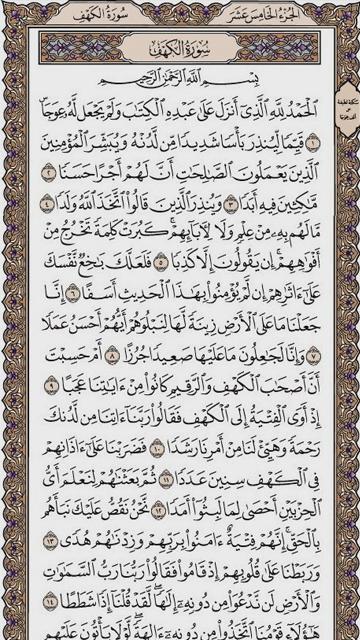 الجزء الخامس عشر
سورة الكهف
سُورَةُ الكَهْفِ
بِسْمِ اللَّهِ الرَّحْمَٰنِ الرَّحِيمِ
الْحَمْدُ لِلَّهِ الَّذِي أَنزَلَ عَلَىٰ عَبْدِهِ الْكِتَٰبَ وَلَمْ يَجْعَل لَّهُۥ عِوَجَاۜ
١ قَيِّمًا لِّيُنذِرَ بَأْسًا شَدِيدًا مِّن لَّدُنْهُ وَيُبَشِّرَ الْمُؤْمِنِينَ
الَّذِينَ يَعْمَلُونَ الصَّٰلِحَٰتِ أَنَّ لَهُمْ أَجْرًا حَسَنًا ٢
مَّٰكِثِينَ فِيهِ أَبَدًا ٣ وَيُنذِرَ الَّذِينَ قَالُوا اتَّخَذَ اللَّهُ وَلَدًا ٤
مَّا لَهُم بِهِۦ مِنْ عِلْمٍ وَلَا لِـَٔابَآئِهِمْ ۚ كَبُرَتْ كَلِمَةً تَخْرُجُ مِنْ
أَفْوَٰهِهِمْ ۚ إِن يَقُولُونَ إِلَّا كَذِبًا ٥ فَلَعَلَّكَ بَٰخِعٌ نَّفْسَكَ
عَلَىٰٓ ءَاثَٰرِهِمْ إِن لَّمْ يُؤْمِنُوا بِهَٰذَا الْحَدِيثِ أَسَفًا ٦ إِنَّا
جَعَلْنَا مَا عَلَى الْأَرْضِ زِينَةً لَّهَا لِنَبْلُوَهُمْ أَيُّهُمْ أَحْسَنُ عَمَلًا
٧ وَإِنَّا لَجَٰعِلُونَ مَا عَلَيْهَا صَعِيدًا جُرُزًا ٨ أَمْ حَسِبْتَ
أَنَّ أَصْحَٰبَ الْكَهْفِ وَالرَّقِيمِ كَانُوا مِنْ ءَايَٰتِنَا عَجَبًا ٩
إِذْ أَوَى الْفِتْيَةُ إِلَى الْكَهْفِ فَقَالُوا رَبَّنَآ ءَاتِنَا مِن لَّدُنكَ
رَحْمَةً وَهَيِّئْ لَنَا مِنْ أَمْرِنَا رَشَدًا ١٠ فَضَرَبْنَا عَلَىٰٓ ءَاذَانِهِمْ
فِي الْكَهْفِ سِنِينَ عَدَدًا ١١ ثُمَّ بَعَثْنَٰهُمْ لِنَعْلَمَ أَيُّ
الْحِزْبَيْنِ أَحْصَىٰ لِمَا لَبِثُوٓا أَمَدًا ١٢ نَّحْنُ نَقُصُّ عَلَيْكَ نَبَأَهُم
بِالْحَقِّ ۚ إِنَّهُمْ فِتْيَةٌ ءَامَنُوا بِرَبِّهِمْ وَزِدْنَٰهُمْ هُدًى ١٣
وَرَبَطْنَا عَلَىٰ قُلُوبِهِمْ إِذْ قَامُوا فَقَالُوا رَبُّنَا رَبُّ السَّمَٰوَٰتِ
وَالْأَرْضِ لَن نَّدْعُوَا مِن دُونِهِۦٓ إِلَٰهًا ۖ لَّقَدْ قُلْنَآ إِذًا شَطَطًا ١٤
هَٰٓؤُلَآءِ قَوْمُنَا اتَّخَذُوا مِن دُونِهِۦٓ ءَالِهَةً ۖ لَّوْلَا يَأْتُونَ عَلَيْهِم